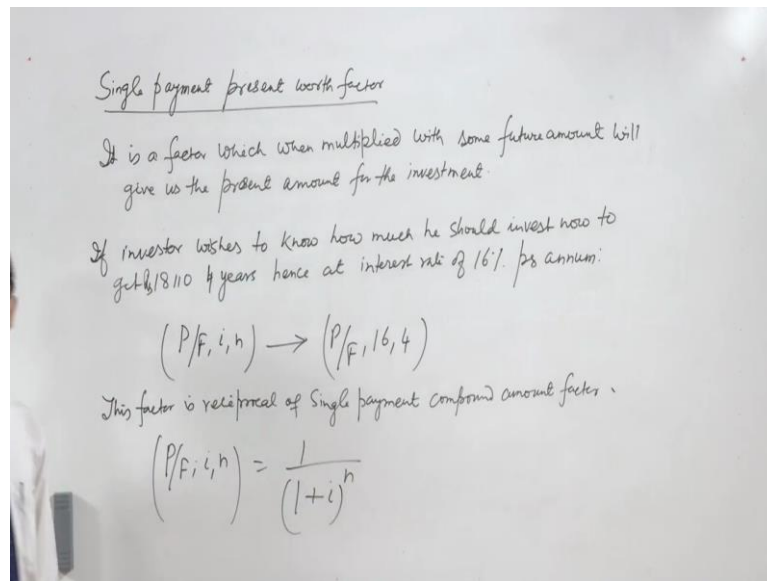 Single payment present worth factor
It is a factor which when multiplied with some future amount will
give us the present amount for the investment.
If investor wishes to know how much he should invest now to
get Rs 18110 4 years hence at interest rate of 16% per annum:
(P/F, i, n) → (P/F, 16, 4)
This factor is reciprocal of Single payment compound amount factor.
(P/F, i, n) = 1/(1+i)^n